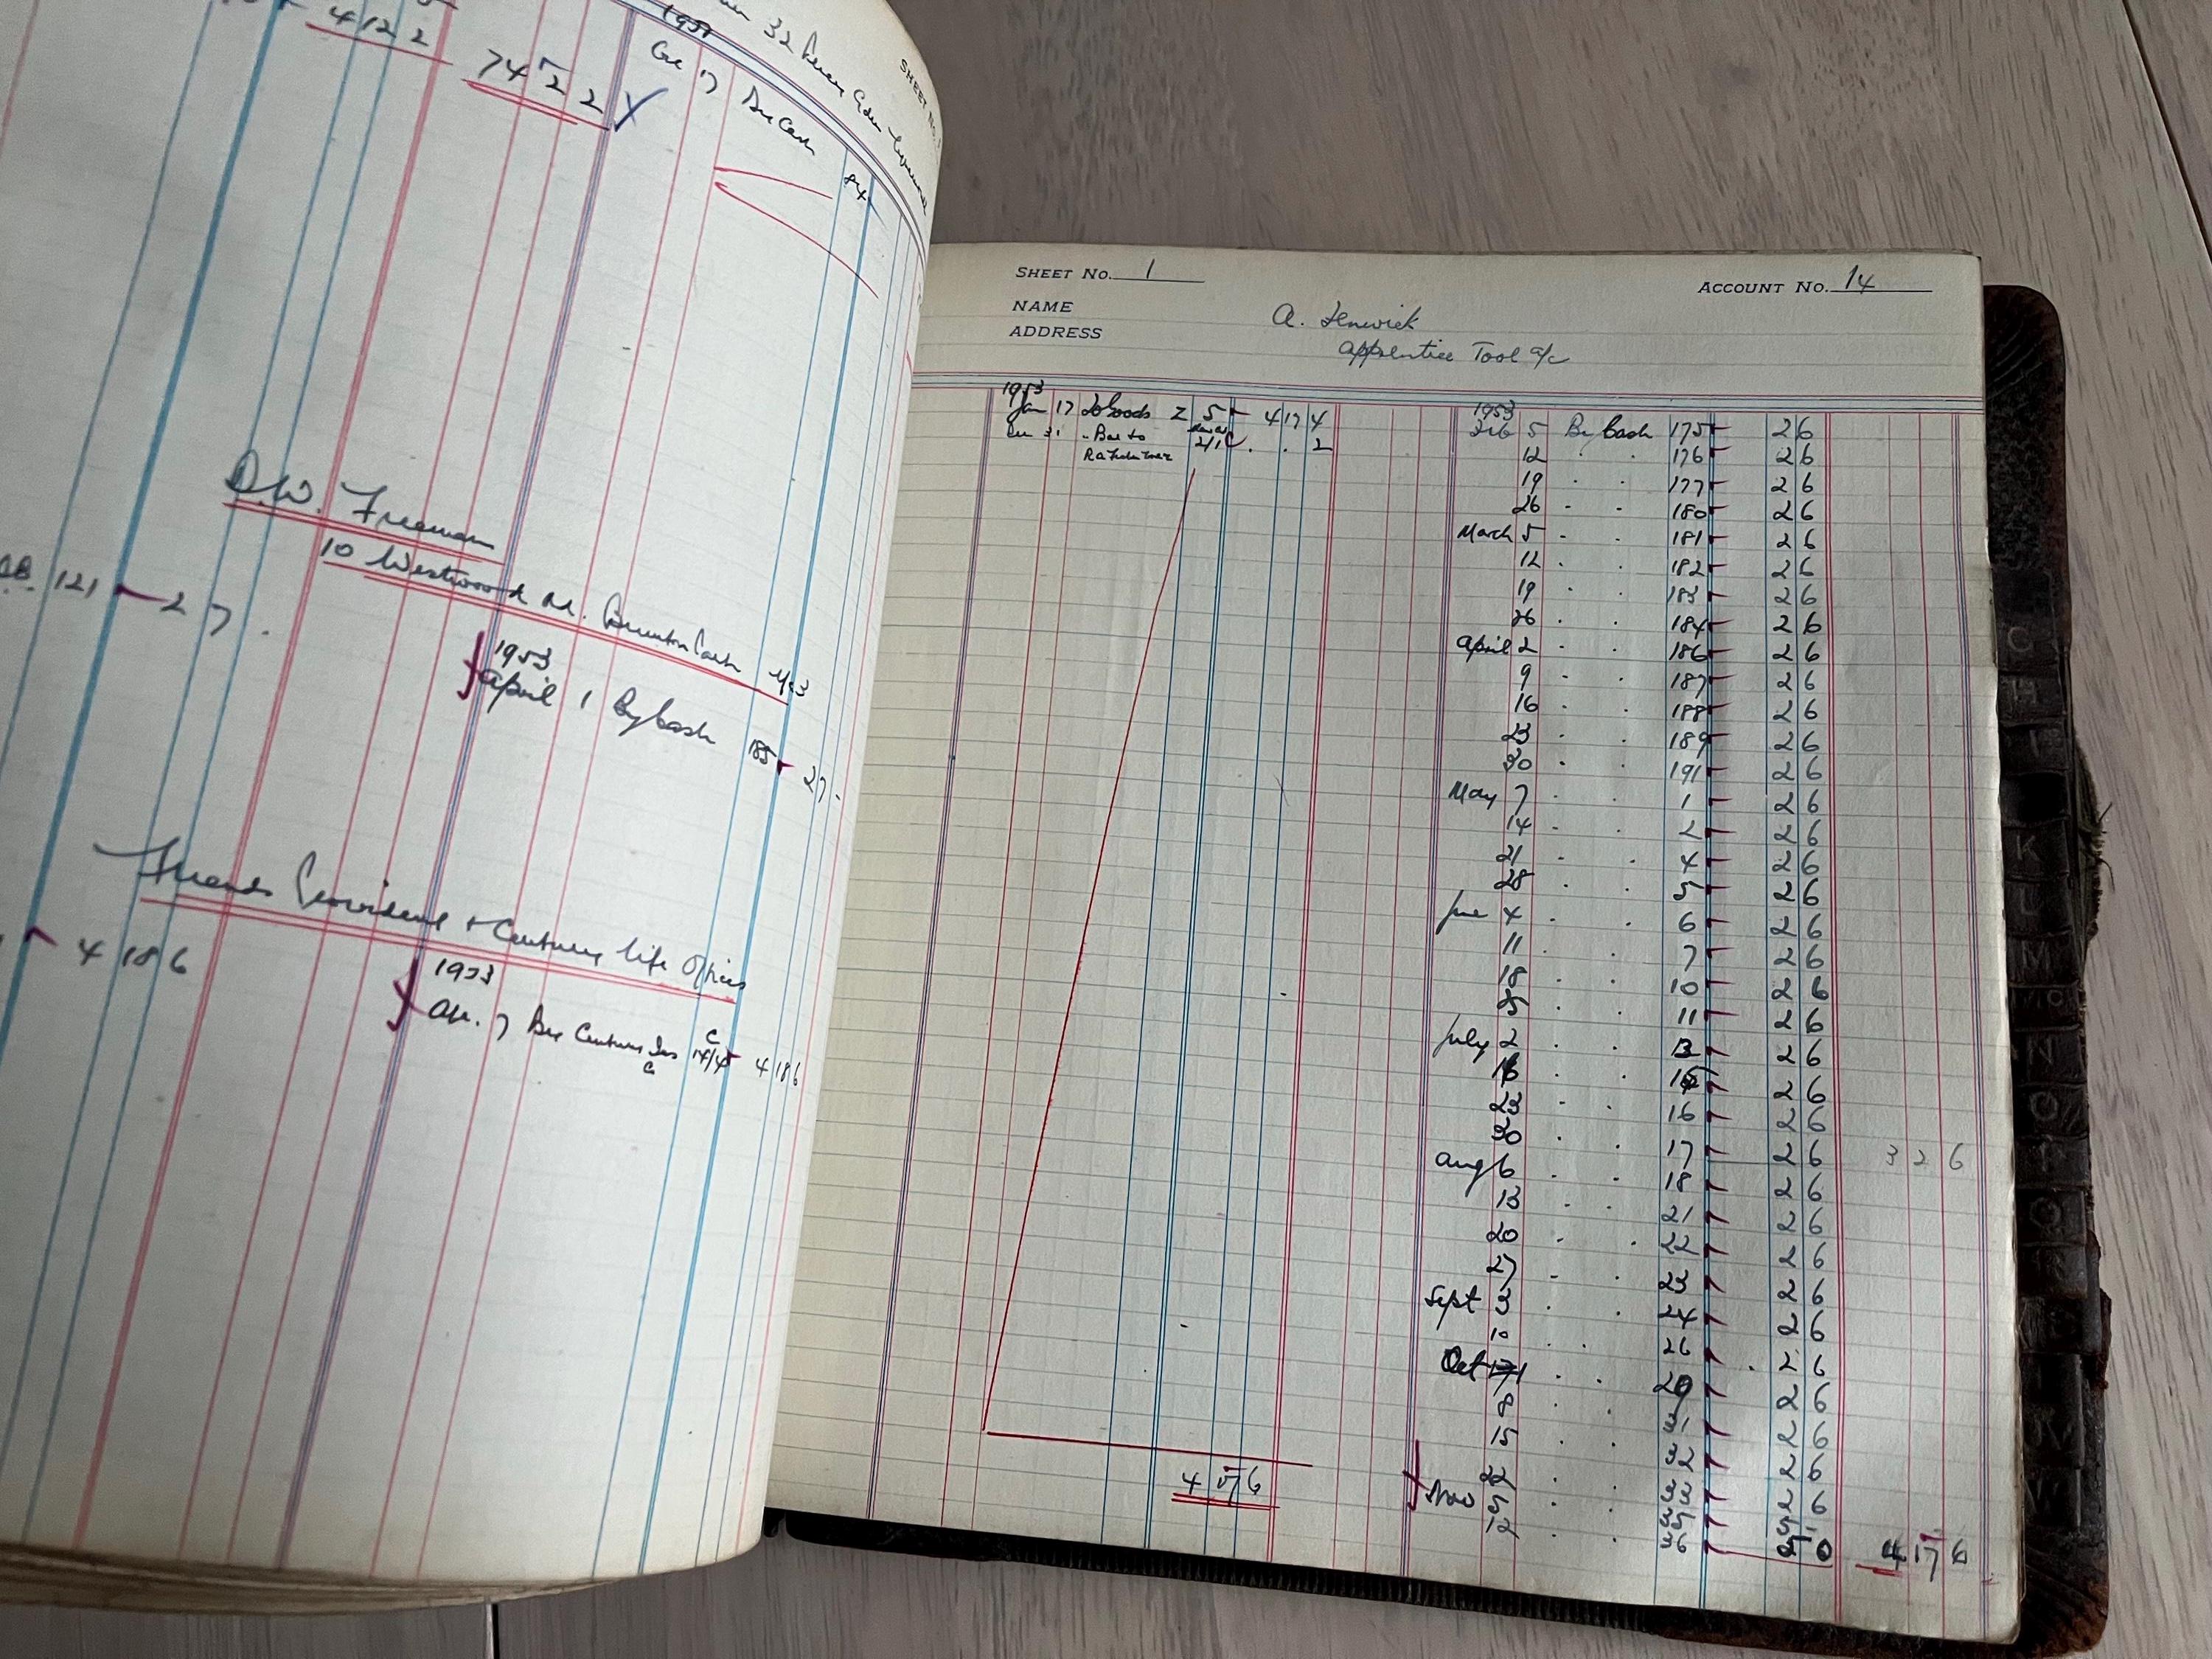 4 12 2
74 2 2
1951
17 By Cash
SHEET NO.
D.W. Freeman
10 Westwood Rd.
121 2 7
1953
April 1 By Cash 185 2 7 -
Friends Provident & Century Life Offices
4 18 6
1953
Apr. 7 By Century Ins 4 18 6
SHEET NO. 1
ACCOUNT NO. 14
NAME A. Fenwick
ADDRESS Apprentice Tool a/c
1953
Jan 17 To Goods Z 5 4 17 4
Dec 31 2
4 17 6
1953
Feb 5 By Cash 175 2 6
12 . . 176 2 6
19 . . 177 2 6
26 . . 180 2 6
March 5 . . 181 2 6
12 . . 182 2 6
19 . . 183 2 6
26 . . 184 2 6
April 2 . . 186 2 6
9 . . 187 2 6
16 . . 188 2 6
23 . . 189 2 6
30 . . 191 2 6
May 7 . . 1 2 6
14 . . 2 2 6
21 . . 4 2 6
28 . . 5 2 6
June 4 . . 6 2 6
11 . . 7 2 6
18 . . 10 2 6
25 . . 11 2 6
July 2 . . 13 2 6
16 . . 15 2 6
23 . . 16 2 6
30 . . 17 2 6 3 2 6
Aug 6 . . 18 2 6
13 . . 21 2 6
20 . . 22 2 6
27 . . 23 2 6
Sept 3 . . 24 2 6
10 . . 26 2 6
Oct 1 . . 29 2 6
8 . . 31 2 6
15 . . 32 2 6
22 . . 33 2 6
Nov 5 . . 35
12 . . 36 0 4 17 6
C
H
I
K
L
M
MC
N
O
W